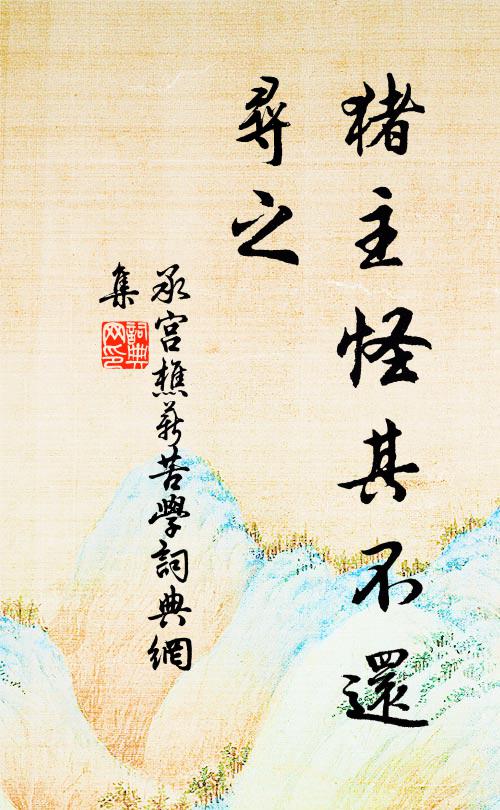 猪主怪其不還
尋之
承宫樵薪苦學詞典網
集
詞典
网印